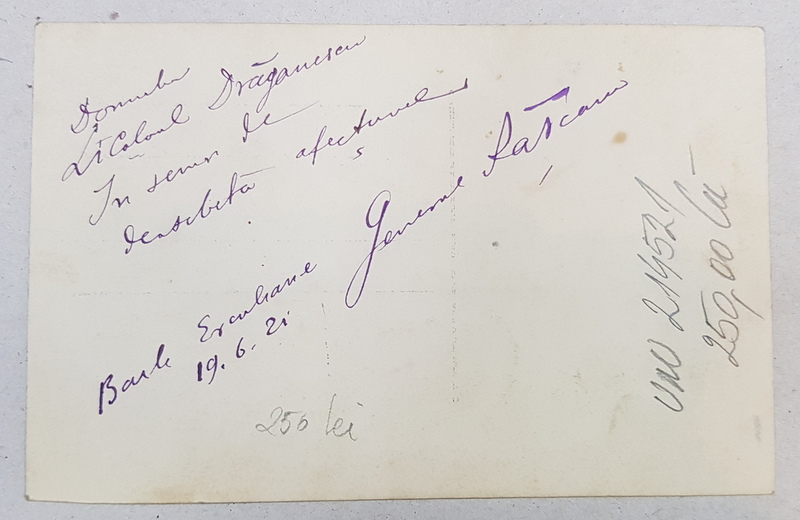 Domnului
Lt Colonel Drăgănescu
În semn de
deosebită afecțiune
General Rășcanu
Baile Erculane
19.6.21
250 lei
219521
250,00 lei